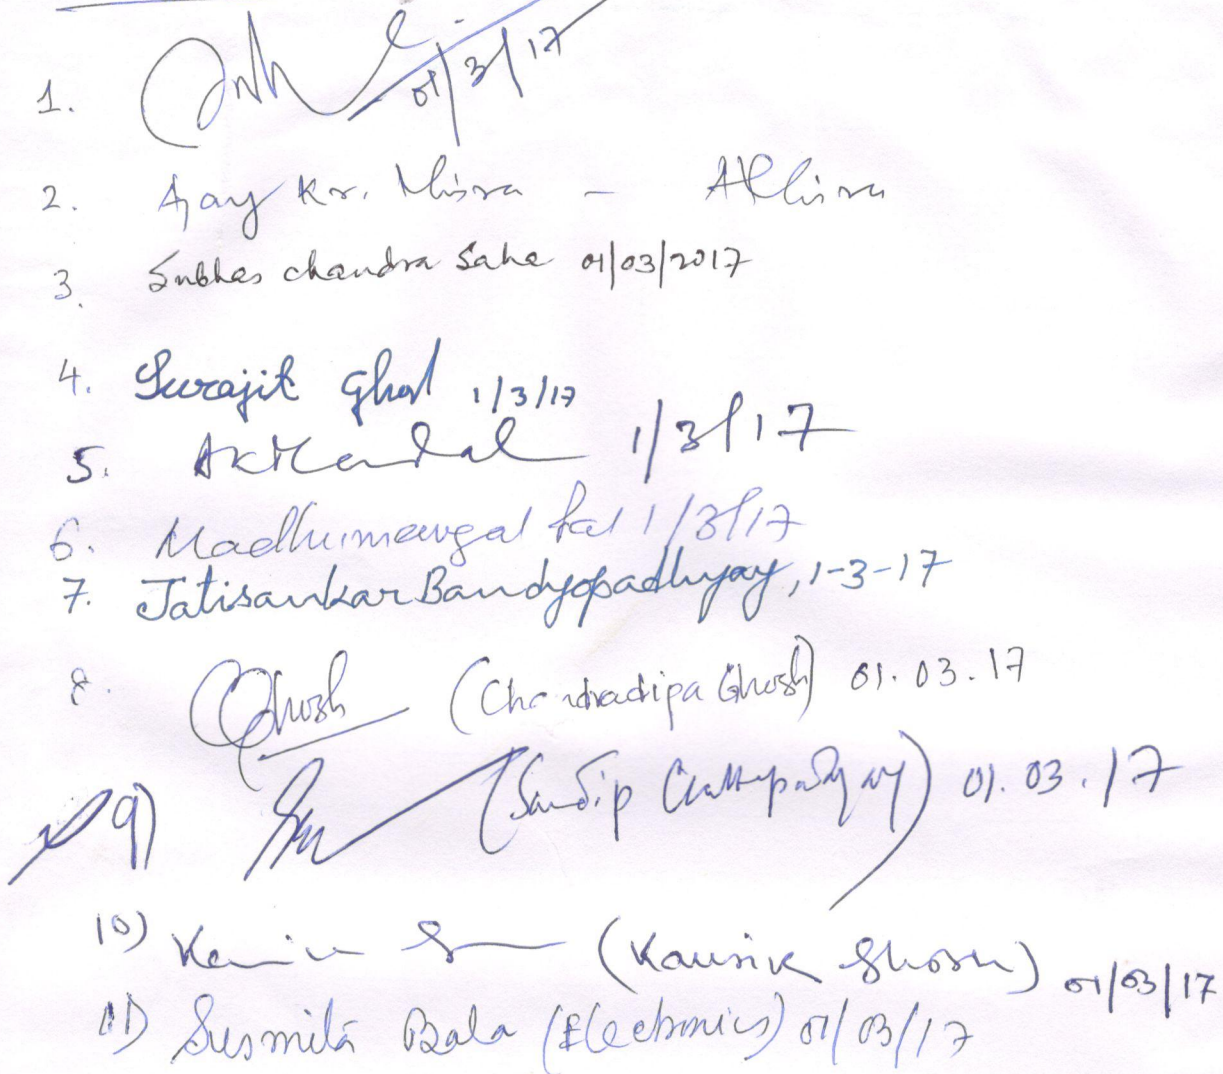 1. 01/3/17
2. Ajay Kr. Misra - AKMisra
3. Subhas chandra Saha 01/03/2017
4. Surajit Ghosh 1/3/17
5. AKMandal 1/3/17
6. Madhumangal Pal 1/3/17
7. Jatisankar Bandyopadhyay, 1-3-17
8. Ghosh (Chandradipa Ghosh) 01.03.17
9) (Sandip Chattopadhyay) 01.03.17
10) (Kausik Ghosh) 01/03/17
11) Susmita Bala (Electronics) 01/03/17